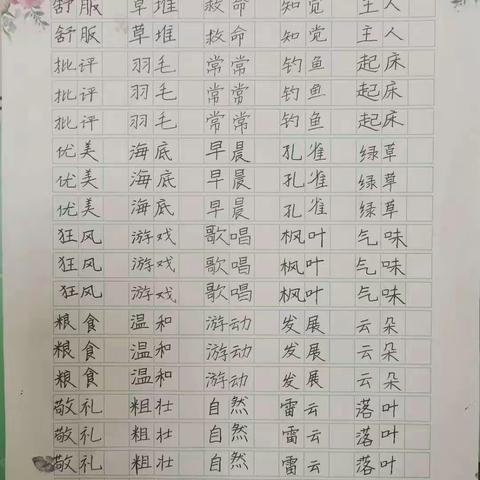 舒服 草堆 救命 知觉 主人
舒服 草堆 救命 知觉 主人
批评 羽毛 常常 钓鱼 起床
批评 羽毛 常常 钓鱼 起床
批评 羽毛 常常 钓鱼 起床
优美 海底 早晨 孔雀 绿草
优美 海底 早晨 孔雀 绿草
优美 海底 早晨 孔雀 绿草
狂风 游戏 歌唱 枫叶 气味
狂风 游戏 歌唱 枫叶 气味
狂风 游戏 歌唱 枫叶 气味
粮食 温和 游动 发展 云朵
粮食 温和 游动 发展 云朵
粮食 温和 游动 发展 云朵
敬礼 粗壮 自然 雷云 落叶
敬礼 粗壮 自然 雷云 落叶
敬礼 粗壮 自然 雷云 落叶